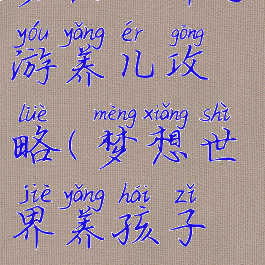 yóu yǎng ér gōng
游养儿攻
lüè mèng xiǎng shì
略(梦想世
jiè yǎng hái zǐ
界养孩子